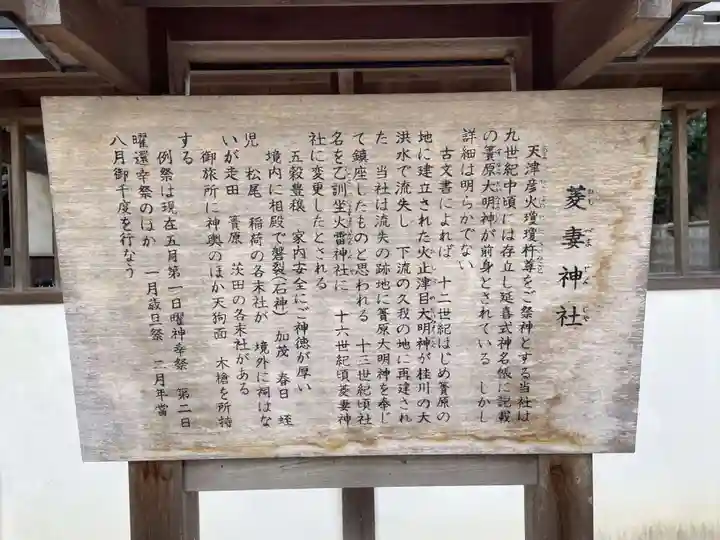 菱妻神社
天津彦火瓊瓊杵尊をご祭神とする当社は
九世紀中頃には存立し延喜式神名帳に記載
の簀原大明神が前身とされている しかし
詳細は明らかでない
古文書によれば 十二世紀はじめ簀原の
地に建立された火止津目大明神が桂川の大
洪水で流失し 下流の久我の地に再建され
た 当社は流失の跡地に簀原大明神を奉じ
て鎮座したものと思われる 十三世紀頃社
名を乙訓坐火雷神社に 十六世紀頃菱妻神
社に変更したとされる
五穀豊穣 家内安全にご神徳が厚い
境内に相殿で磐裂(石神) 加茂 春日 蛭
児 松尾 稲荷の各末社が 境外に祠はな
いが走田 簀原 茨田の各末社がある
御旅所に神輿のほか天狗面 木槍を所持
する
例祭は現在五月第一日曜神幸祭 第二日
曜還幸祭のほか 一月歳旦祭 二月年当
八月御千度を行なう